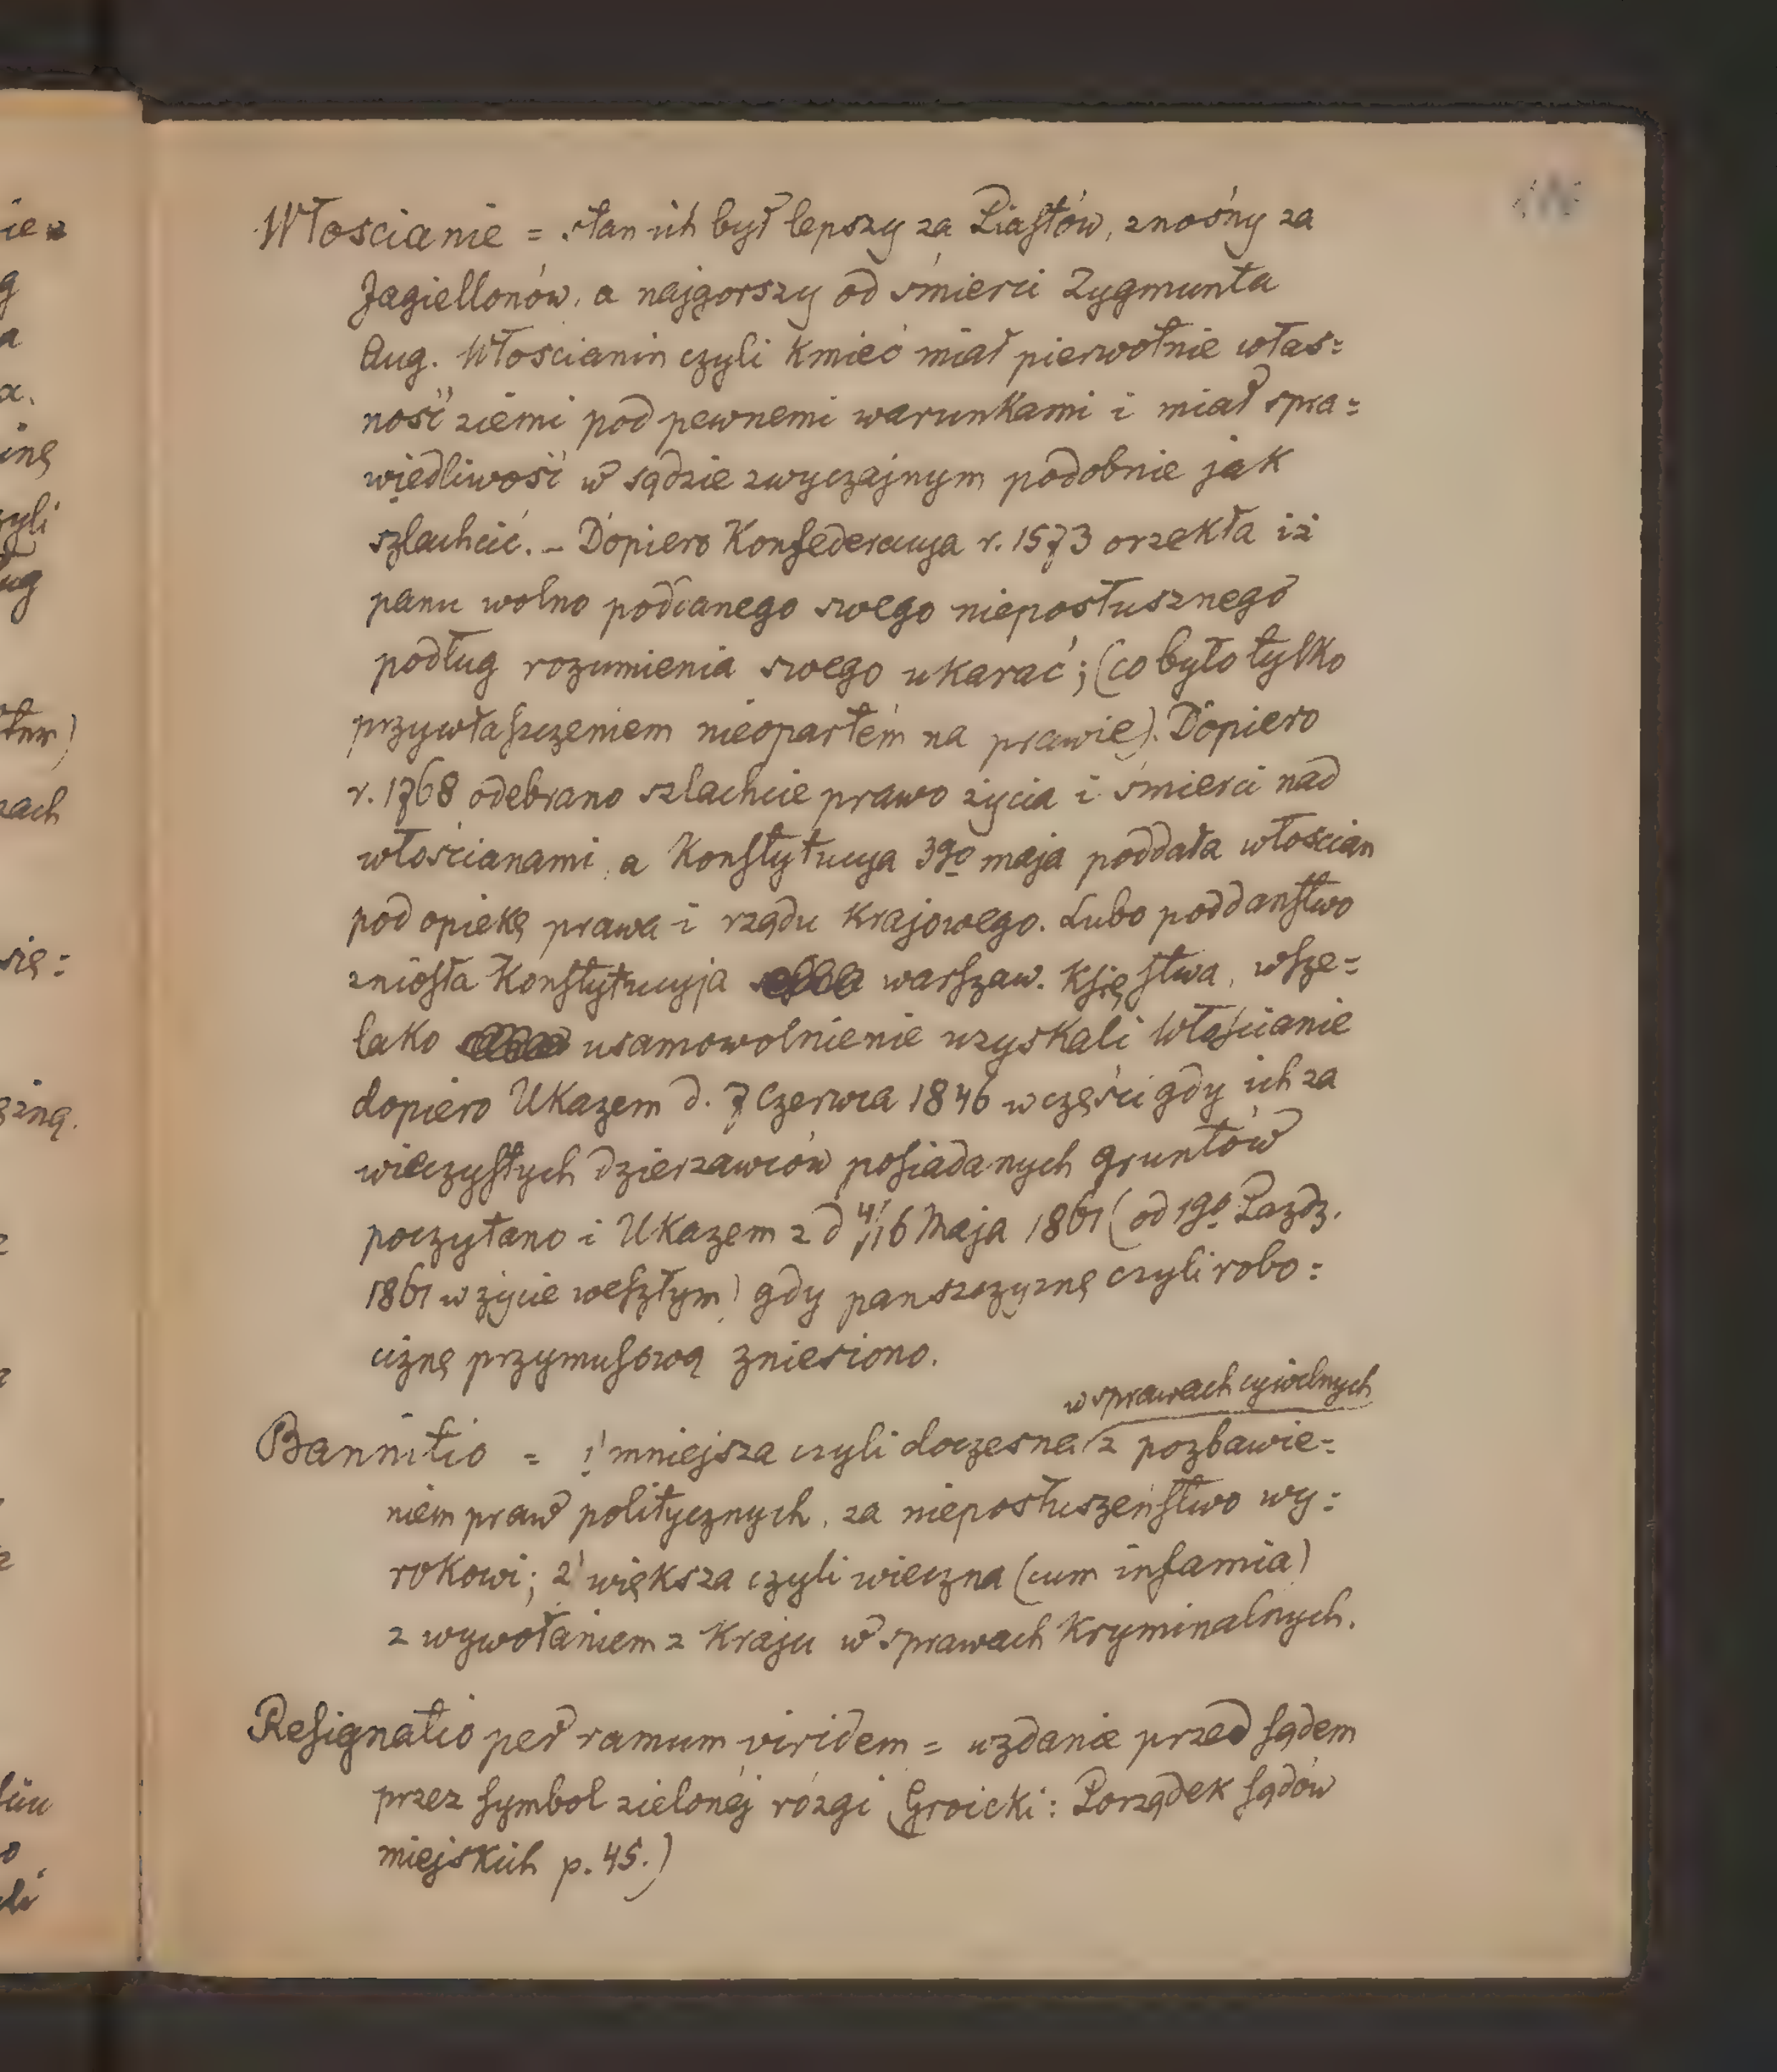 Włoscianie = stan ich był lepszy za Piastów, znośny za
Jagiellonów, a najgorszy od śmierci Zygmunta
Aug. Włoscianin czyli Kmieć miał pierwotnie włas=
ność ziemi pod pewnemi warunkami i miał spra=
wiedliwość w sądzie zwyczajnym podobnie jak
szlachcic. – Dopiero Konfederacya r. 1573 orzekła iż
panu wolno poddanego swego nieposłusznego
podług rozumienia swego ukarać; (co było tylko
przywłaszczeniem nieopartém na prawie). Dopiero
r. 1768 odebrano szlachcie prawo życia i śmierci nad
włościanami, a Konstytucya 3go maja poddała włościan
pod opiekę prawa i rządu Krajowego. Lubo poddaństwo
zniosła Konstytucyja warszaw. Księstwa, wsze=
lako usamowolnienie uzyskali Włościanie
dopiero Ukazem d. 7 Czerwca 1846 w części gdy ich za
wieczystych dzierzawców posiadanych gruntów
poczytano i Ukazem z d 4/16 Maja 1861 (od 1go Pazdz.
1861 w życie weszłym) gdy panszczyznę czyli robo=
ciznę przymusową zniesiono.
w sprawach cywilnych
Bannitio = 1' mniejsza czyli doczesna z pozbawie=
niem praw politycznych, za nieposłuszeństwo wy=
rokowi; 2' większa czyli wieczna (cum infamia)
z wywołaniem z Kraju w sprawach Kryminalnych.
Resignatio per ramum viridem = wzdanie przed sądem
przez symbol zielonéj rózgi (Groicki: Porządek sądów
miejskich p. 45.)